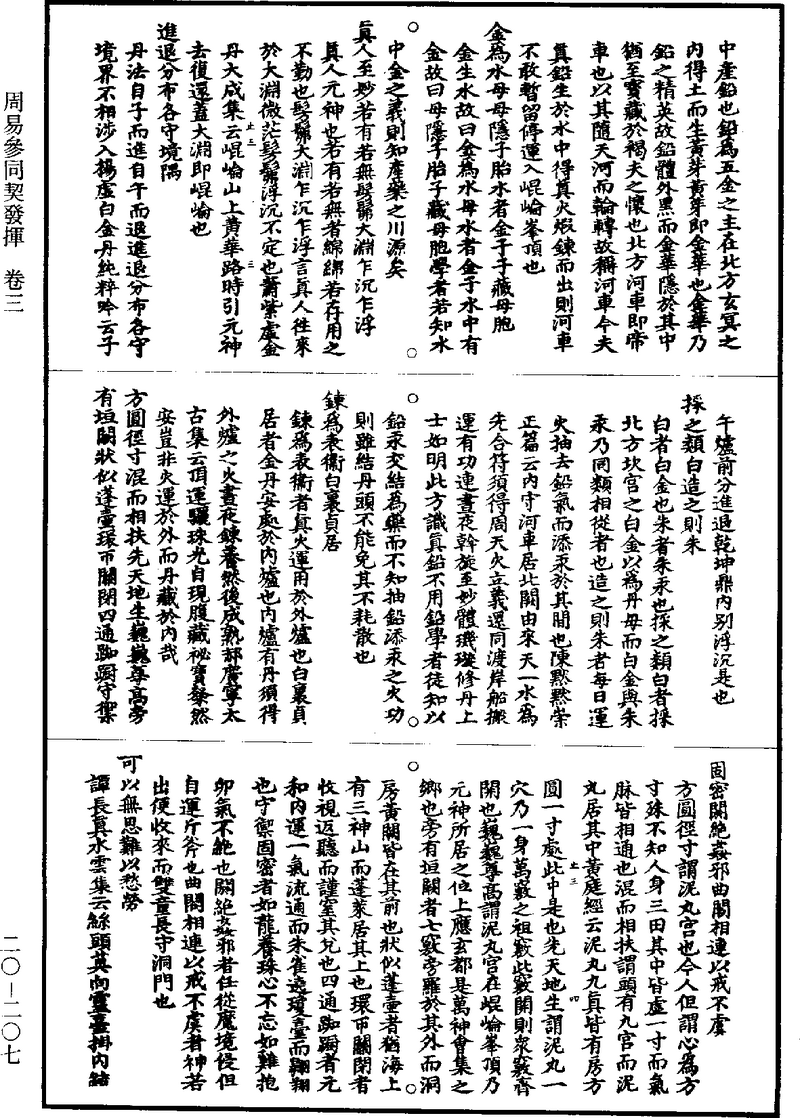 周易參同契發揮 卷三
中產鉛也鉛為五金之主在北方玄冥之
內得土而生黃芽黃芽即金華也金華乃
鉛之精英故鉛體外黑而金華隱於其中
猶至寶藏於褐夫之懷也北方河車即帝
車也以其隨天河而輪轉故稱河車今夫
真鉛生於水中得真火煆鍊而出則河車
不敢暫留停運入崐崘峯頂也
金為水母母隱子胎水者金子子藏母胞
金生水故曰金為水母水者金子水中有
金故曰母隱子胎子藏母胞學者若知水
中金之義則知產藥之川源矣
真人至妙若有若無髣髴大淵乍沉乍浮
真人元神也若有若無者綿綿若存用之
不勤也髣髴大淵乍沉乍浮言真人往來
於大淵微茫髣髴浮沉不定也蕭紫虛金
丹大成集云崐崘山上黃華路時引元神
去復還蓋大淵即崐崘也
進退分布各守境隅
丹法自子而進自午而退進退分布各守
境界不相涉入楊虛白金丹純粹吟云子
午爐前分進退乾坤鼎內別浮沉是也
採之類白造之則朱
白者白金也朱者朱汞也採之類白者採
北方坎宮之白金以為丹母而白金與朱
汞乃同類相從者也造之則朱者每日運
火抽去鉛氣而添汞於其間也陳默默崇
正篇云內守河車居北關由來天一水為
先合符須得周天火立義還同渡岸船搬
運有功連晝夜斡旋至妙體璣璇修丹上
士如明此方識真鉛不用鉛學者徒知以
鉛汞交結為藥而不知抽鉛添汞之火功
則雖結丹頭不能免其不耗散也
鍊為表衛白裏貞居
鍊為表衛者真火運用於外爐也白裏貞
居者金丹安處於內爐也內爐有丹須得
外爐之火晝夜鍊養然後成熟郝廣寧太
古集云頂運驪珠光自現腹藏祕寶粲然
安豈非火運於外而丹藏於內哉
方圓徑寸混而相扶先天地生巍巍尊高旁
有垣闕狀似蓬壺環匝關閉四通踟躕守禦
固密閼絕姦邪曲閣相連以戒不虞
方圓徑寸謂泥丸宮也今人但謂心為方
寸殊不知人身三田其中皆虛一寸而氣
脉皆相通也混而相扶謂頭有九宮而泥
丸居其中黃庭經云泥丸九真皆有房方
圓一寸處此中是也先天地生謂泥丸一
穴乃一身萬竅之祖竅此竅開則眾竅齊
開也巍巍尊高謂泥丸宮在崐崘峯頂乃
元神所居之位上應玄都是萬神會集之
鄉也旁有垣闕者七竅旁羅於其外而洞
房黃闕皆在其前也狀似蓬壺者猶海上
有三神山而蓬萊居其上也環匝關閉者
收視返聽而謹室其兌也四通踟躕者元
和內運一氣流通而朱雀遶瓊臺而翺翔
也守禦固密者如龍養珠心不忘如雞抱
卵氣不絕也閼絕姦邪者任從魔境侵但
自運斤斧也曲閣相連以戒不虞者神若
出便收來而雙童長守洞門也
可以無思難以愁勞
譚長真水雲集云絲頭莫向靈臺掛內結
二〇—二〇七